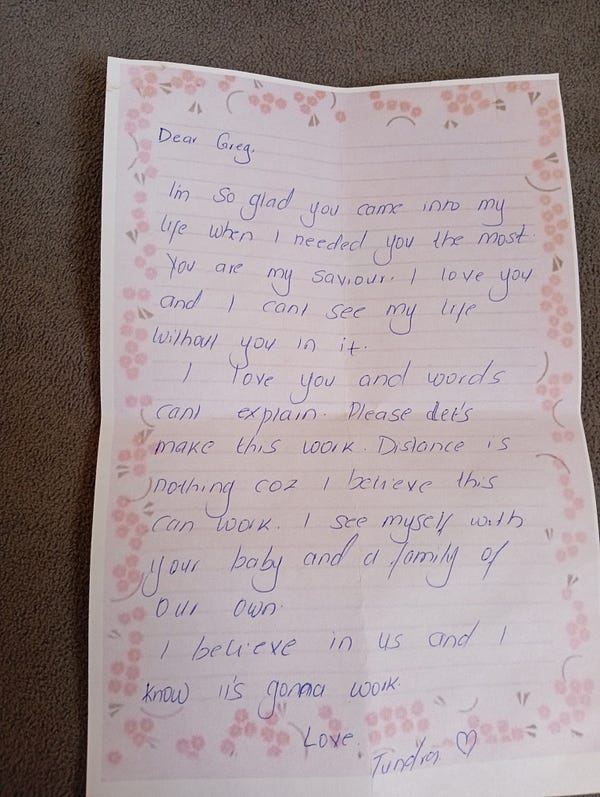 Dear Greg,
I'm so glad you came into my
life when I needed you the most.
You are my saviour. I love you
and I can't see my life
without you in it.
I love you and words
can't explain. Please let's
make this work. Distance is
nothing coz I believe this
can work. I see myself with
your baby and a family of
our own.
I believe in us and I
know it's gonna work.
Love.